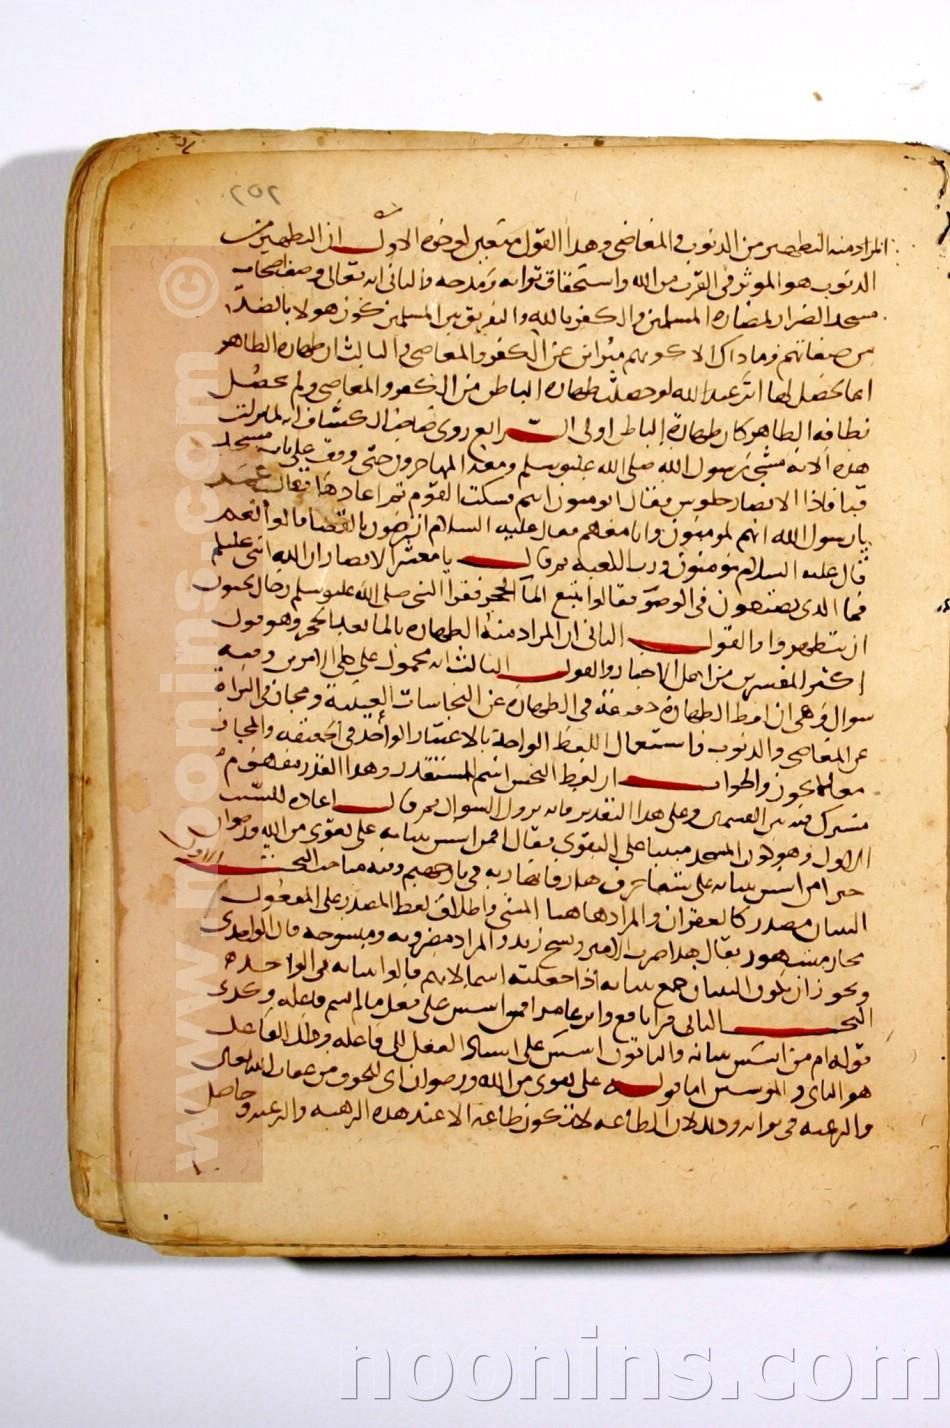 ٢٥٢
المراد منه التطهير من الذنوب والمعاصى وهذا القول متعين لوجوه الاول ان التطهير من
الذنوب هو الموثر فى القرب من الله واستحقاق ثوابه ومدحه والثانى انه تعالى وصف اصحاب
مسجد الضرار بمضاره المسلمين والكفر بالله والتفريق بين المسلمين فكون هولا بالضد
من صفاتهم وما ذاك الا كونهم مبراين عن الكفر والمعاصى والثالث ان طهاره الظاهر
انما يحصل لها اثر عند الله لو حصلت طهاره الباطن من الكفر والمعاصى ولم تحصل
نظافه الظاهر كان طهارة الباطن اولى الرابع روى صاحب الكشاف انه لما نزلت
هذه الايه مشى رسول الله صلى الله عليه وسلم ومعه المهاجرون حتى وقف على باب مسجد
قبا فاذا الانصار جلوس فقال امومنون انتم فسكت القوم ثم اعادها فقال عمر
يا رسول الله انهم لمومنون وانا معهم فقال عليه السلام اترضون بالقضا قالوا نعم
قال عليه السلام مومنون ورب الكعبه ثم قال يا معشر الانصار ان الله اثنى عليكم
فما الذى تصنعون فى الوضو فقالوا نتبع الما الحجر فقرا النبى صلى الله عليه وسلم رجال يحبون
ان يتطهروا والقول الثانى ان المراد منه الطهاره بالما بعد الحجر وهو قول
اكثر المفسرين من اهل الاخبار والقول الثالث انه محمول على كلى الامرين وفيه
سوال وهى ان لفظ الطهارة حقيقة فى الطهارة عن النجاسات العينية ومجاز فى البراة
عن المعاصى والذنوب فاستعمال اللفظ الواحد بالاعتبار الواحد فى الحقيقه والمجاز
معا لا يجوز والجواب ان لفظ النجس اسم للمستقذر وهذا القدر مفهوم
مشترك فيه بين القسمين وعلى هذا التقدير فانه يزول السوال ثم قال اعاده للسبب
الاول وهو كون المسجد مبنيا على التقوى فقال افمن اسس بنيانه على تقوى من الله ورضوان
خير امن اسس بنيانه على شفا جرف هار فانهار به فى نار جهنم وفيه مباحث البحث الاول
البنيان مصدر كالغفران والمراد هاهنا المبنى واطلاق لفظ المصدر على المفعول
مجاز مشهور يقال هذا ضرب الامير ونسج زيد والمراد مضروبه ومنسوجه قال الواحدى
ويجوز ان يكون البنيان جمع بنيانه اذا جعلته اسما لانهم قالوا بنيانه فى الواحده
البحث الثانى قرا نافع وابن عامر افمن اسس على فعل ما لم يسم فاعله وكذى
قوله ام من اسس بنيانه والباقون اسس على اسناد الفعل الى فاعله وذلك الفاعل
هو البانى والموسس اما قوله على تقوى من الله ورضوان اى الخوف من عقاب الله تعالى
والرغبه فى ثوابه وذلك لان الطاعه لا تكون طاعة الا عند هذه الرهبه والرغبه وحاصل
© www.noonins.com
noonins.com